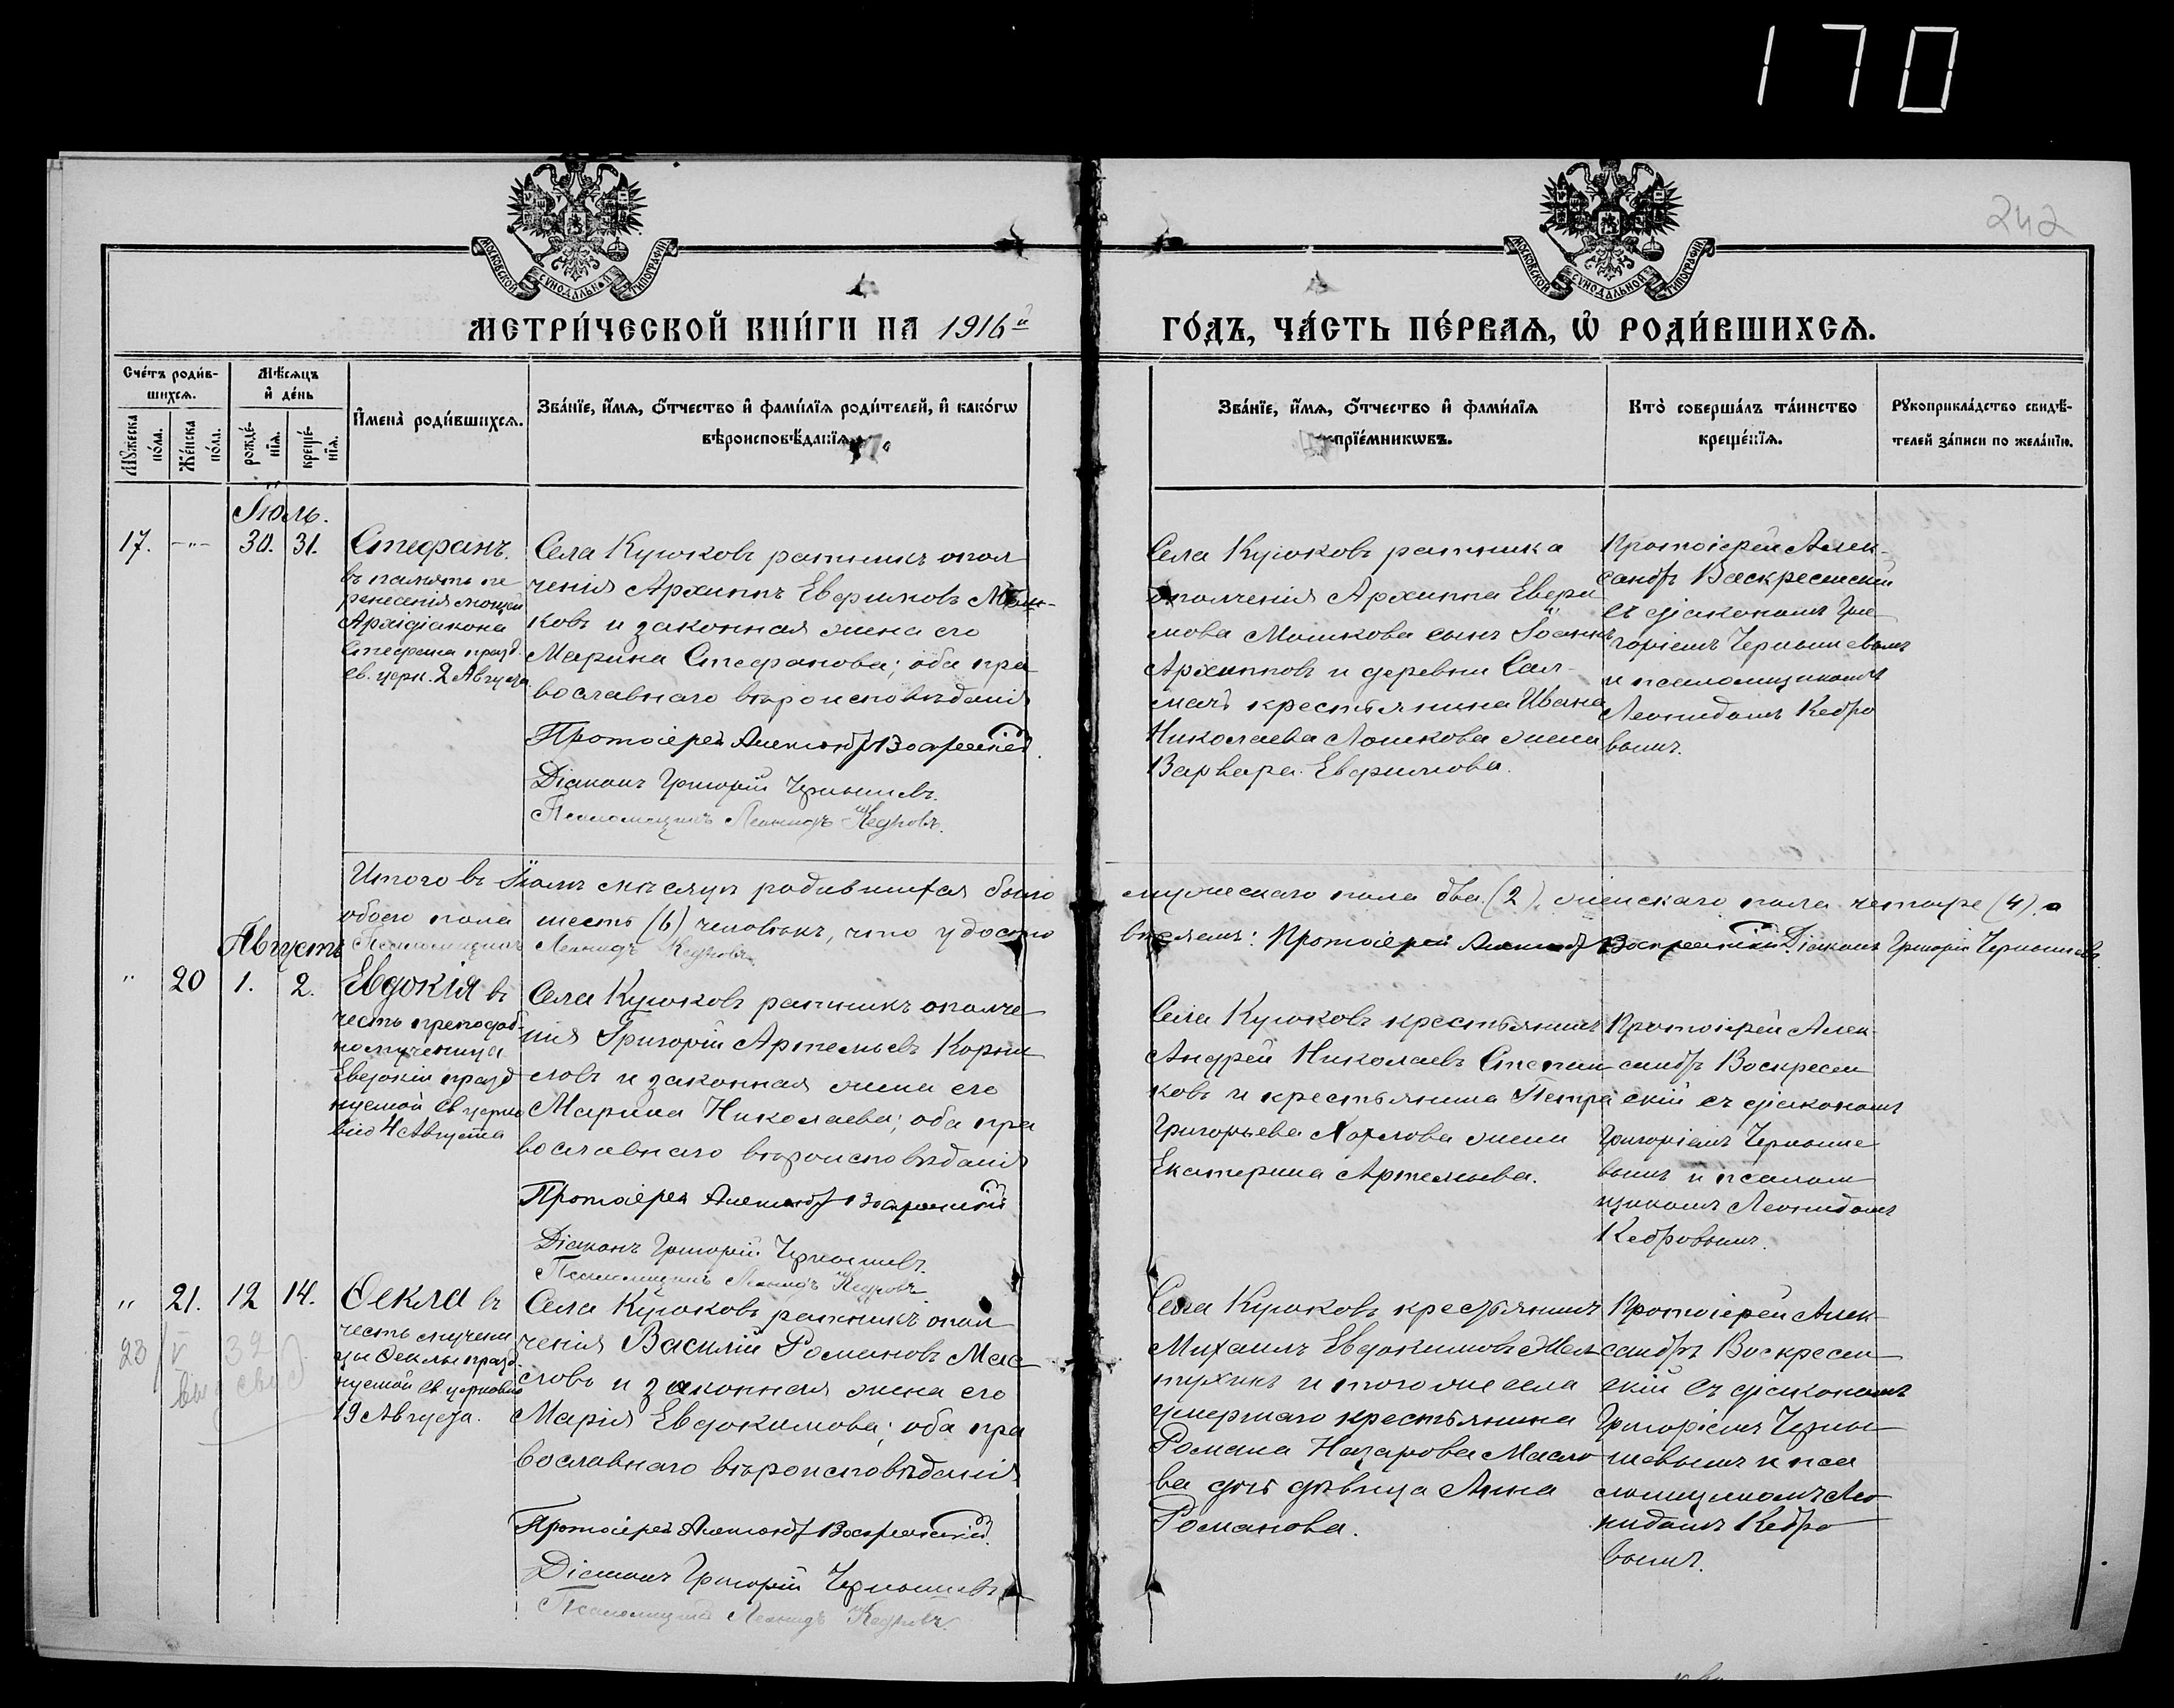 170
242
МОСКОВСКОЙ СѴНОДАЛЬНОЙ ТИПОГРАФІИ
МОСКОВСКОЙ СѴНОДАЛЬНОЙ ТИПОГРАФІИ
МЕТРИ́ЧЕСКОЙ КНИ́ГИ НА 1916й
ГО́ДЪ, ЧА́СТЬ ПЕ́РВАѦ, Ѡ҆ РОДИ́ВШИХСѦ.
Сче́тъ роди́в-
шихсѧ.
Мѣ́сѧцъ
и҆ де́нь
Мꙋ́жеска
по́ла.
Же́нска
по́ла.
рожде́-
нїѧ.
креще́-
нїѧ.
И҆мена̀ роди́вшихсѧ.
Зва́нїе, и҆́мѧ, ѻ҆́тчество и҆ фами́лїѧ роди́телей, и҆ како́гѡ
вѣроисповѣ́данїѧ.
Зва́нїе, и҆́мѧ, ѻ҆́тчество и҆ фами́лїѧ
прїе́мникѡвъ.
Кто̀ соверша́лъ та́инство
креще́нїѧ.
Рꙋкоприкла́дство свидѣ́-
телей за́писи по жела́нїю.
Іюль.
17. -"- 30. 31.
Стефанъ.
въ память пе
ренесенія мощей
Архідіакона
Стефана празд.
св. церк. 2 Августа
Села Куюковъ ратникъ опол
ченія Архиппъ Евфимовъ Мош-
ковъ и законная жена его
Марина Стефанова; оба пра
вославнаго вѣроисповѣданія
Протоіерей Александръ Воскресенскій.
Діаконъ Григорій Чернышевъ.
Псаломщикъ Леонидъ Кедровъ.
Села Куюковъ ратника
ополченія Архиппа Евфи
мова Мошкова сынъ Іоаннъ
Архипповъ и деревни Сал-
мачъ крестьянина Ивана
Николаева Лошкова жена
Варвара Евфимова.
Протоіерей Алек-
сандръ Воскресенскій
съ діакономъ Гри
горіемъ Чернышевымъ
и псаломщикомъ
Леонидомъ Кедро
вымъ.
Итого въ Іюлѣ мѣсяцѣ родившихся было
мужескаго пола два (2), женскаго пола четыре (4), а
обоего пола шесть (6) человѣкъ, что удосто
вѣряемъ: Протоіерей Александръ Воскресенскій. Діаконъ Григорій Чернышевъ.
Псаломщикъ Леонидъ Кедровъ.
Августъ
" 20 1. 2.
Евдокія въ
честь преподоб-
номученицы
Евдокіи празд
нуемой св церко
вію 4 Августа
Села Куюковъ ратникъ ополче
нія Григорій Артемьевъ Корни
ловъ и законная жена его
Марина Николаева; оба пра
вославнаго вѣроисповѣданія
Протоіерей Александръ Воскресенскій
Діаконъ Григорій Чернышевъ.
Псаломщикъ Леонидъ Кедровъ.
Села Куюковъ крестьянинъ
Андрей Николаевъ Степан
ковъ и крестьянина Петра
Григорьева Козлова жена
Екатерина Артемьева.
Протоіерей Алек-
сандръ Воскресен
скій съ діакономъ
Григоріемъ Черныше
вымъ и псалом
щикомъ Леонидомъ
Кедровымъ.
" 21. 12 14.
Ѳекла въ
честь мучени
цы Ѳеклы празд-
нуемой св церковію
19 Августа.
23/V 32
Села Куюковъ ратникъ опол
ченія Василій Романовъ Мас
ловъ и законная жена его
Марія Евдокимова; оба пра
вославнаго вѣроисповѣданія
Протоіерей Александръ Воскресенскій.
Діаконъ Григорій Чернышевъ
Псаломщикъ Леонидъ Кедровъ.
Села Куюковъ крестьянинъ
Михаилъ Евдокимовъ Жел
тухинъ и того же села
умершаго крестьянина
Романа Назарова Масло
ва дочь дѣвица Анна
Романова.
Протоіерей Алек-
сандръ Воскресен
скій съ діакономъ
Григоріемъ Черны
шевымъ и пса
ломщикомъ Лео
нидомъ Кедро
вымъ.